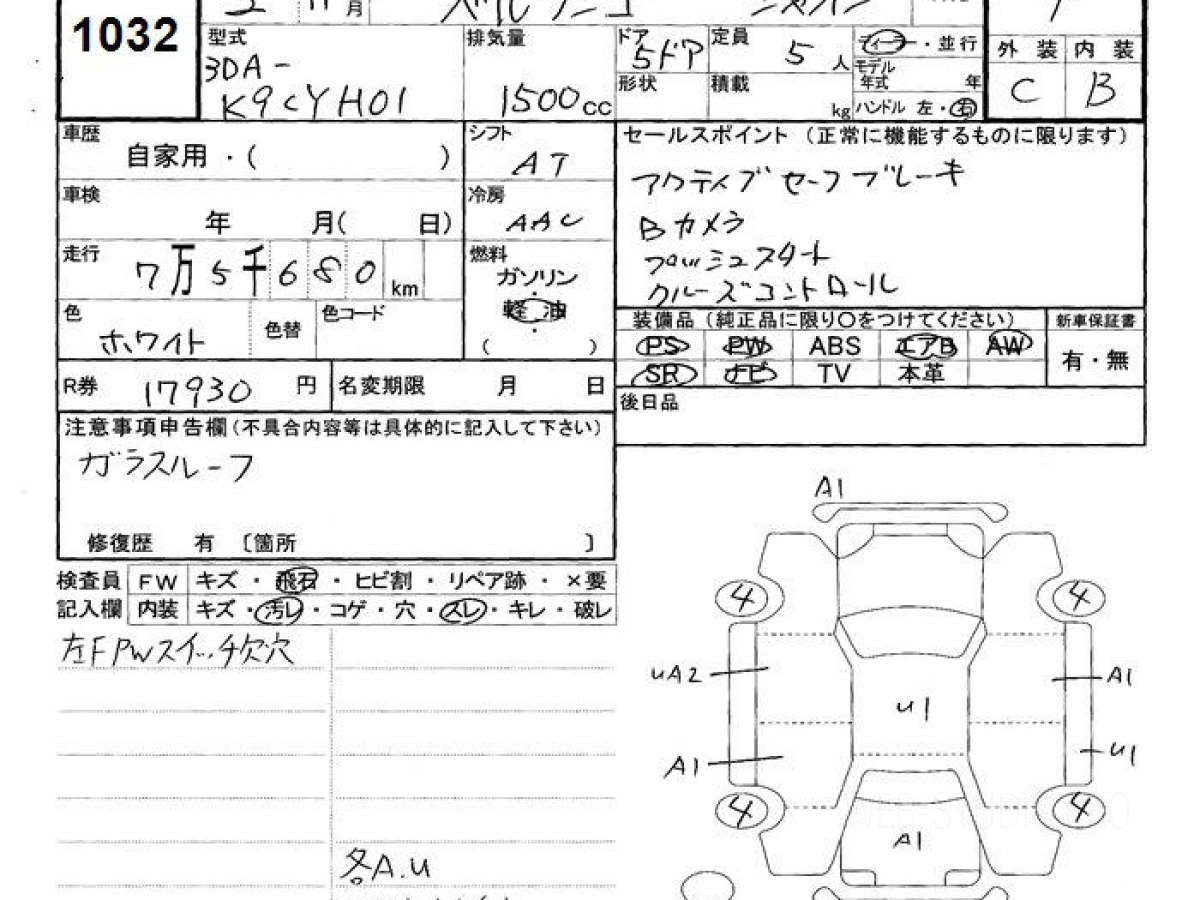 1032
2 11月
型式
3DA-
K9CYH01
排気量
1500cc
ドア
5ドア
形状
定員
5人
積載
kg
ディーラー・並行
モデル
年式 年
ハンドル 左・右
外装 内装
C B
車歴
自家用・( )
シフト
AT
車検
年 月( 日)
冷房
AAC
走行
7万5千680km
燃料
ガソリン
・
軽油
・
( )
色
ホワイト
色替
色コード
R券 17930円
名変期限 月 日
セールスポイント (正常に機能するものに限ります)
アクティブセーフブレーキ
Bカメラ
プッシュスタート
クルーズコントロール
装備品(純正品に限り○をつけてください)
新車保証書
PS PW ABS エアB AW
SR ナビ TV 本革
有・無
後日品
注意事項申告欄(不具合内容等は具体的に記入して下さい)
ガラスルーフ
修復歴 有 〔箇所 〕
検査員 FW キズ・飛石・ヒビ割・リペア跡・×要
記入欄 内装 キズ・汚レ・コゲ・穴・スレ・キレ・破レ
左F PWスイッチ欠穴
各A.U
A1
4 4
uA2 A1
u1
A1 u1
4 4
A1